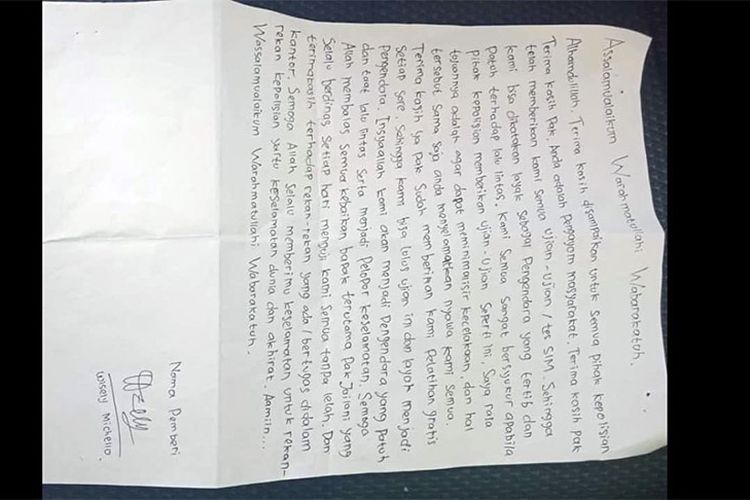 Assalamualaikum Warahmatullahi Wabarakatuh.
Alhamdulillah, Terima kasih disampaikan untuk semua pihak kepolisian
Terima kasih pak, Anda adalah pengayom masyarakat. Terima kasih pak
telah memberikan kami semua ujian-ujian / tes SIM. Sehingga
kami bisa dikatakan layak sebagai pengendara yang tertib dan
patuh terhadap lalu lintas. Kami semua sangat bersyukur apabila
pihak kepolisian memberikan ujian-ujian seperti ini. Saya rasa
tujuannya adalah agar dapat meminimalisir kecelakaan, dan hal
tersebut sama saja anda menyelamatkan nyawa kami semua.
Terima kasih ya pak sudah memberikan kami pelatihan gratis
setiap sore, sehingga kami bisa lolos ujian ini dan layak menjadi
Pengendara. Insyaallah kami akan menjadi pengendara yang patuh
dan taat lalu lintas serta menjadi pelopor keselamatan. Semoga
Allah membalas semua kebaikan bapak terutama Pak Jailani yang
selalu berdinas setiap hari menguji kami semua tanpa lelah. Dan
terimakasih terhadap rekan-rekan yang ada / bertugas didalam
kantor. Semoga Allah selalu memberimu keselamatan untuk rekan-
rekan kepolisian yaitu keselamatan dunia dan akhirat. Aamiin...
Wassalamualaikum Warahmatullahi Wabarakatuh.
Nama Pemberi
Wisely Michello.